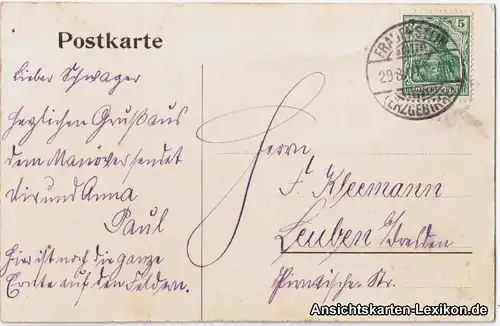 Postkarte
Lieber Schwager
herzlichen Gruß aus
dem Manöver sendet
Dir und Anna
Paul
Hier ist noch die ganze
Ernte auf den Feldern.
5
29.8.
(ERZGEBIRGE)
Herrn
F. Kleemann
Leuben b/Dresden
Pirnaische-Str.
Ansichtskarten-Lexikon.de